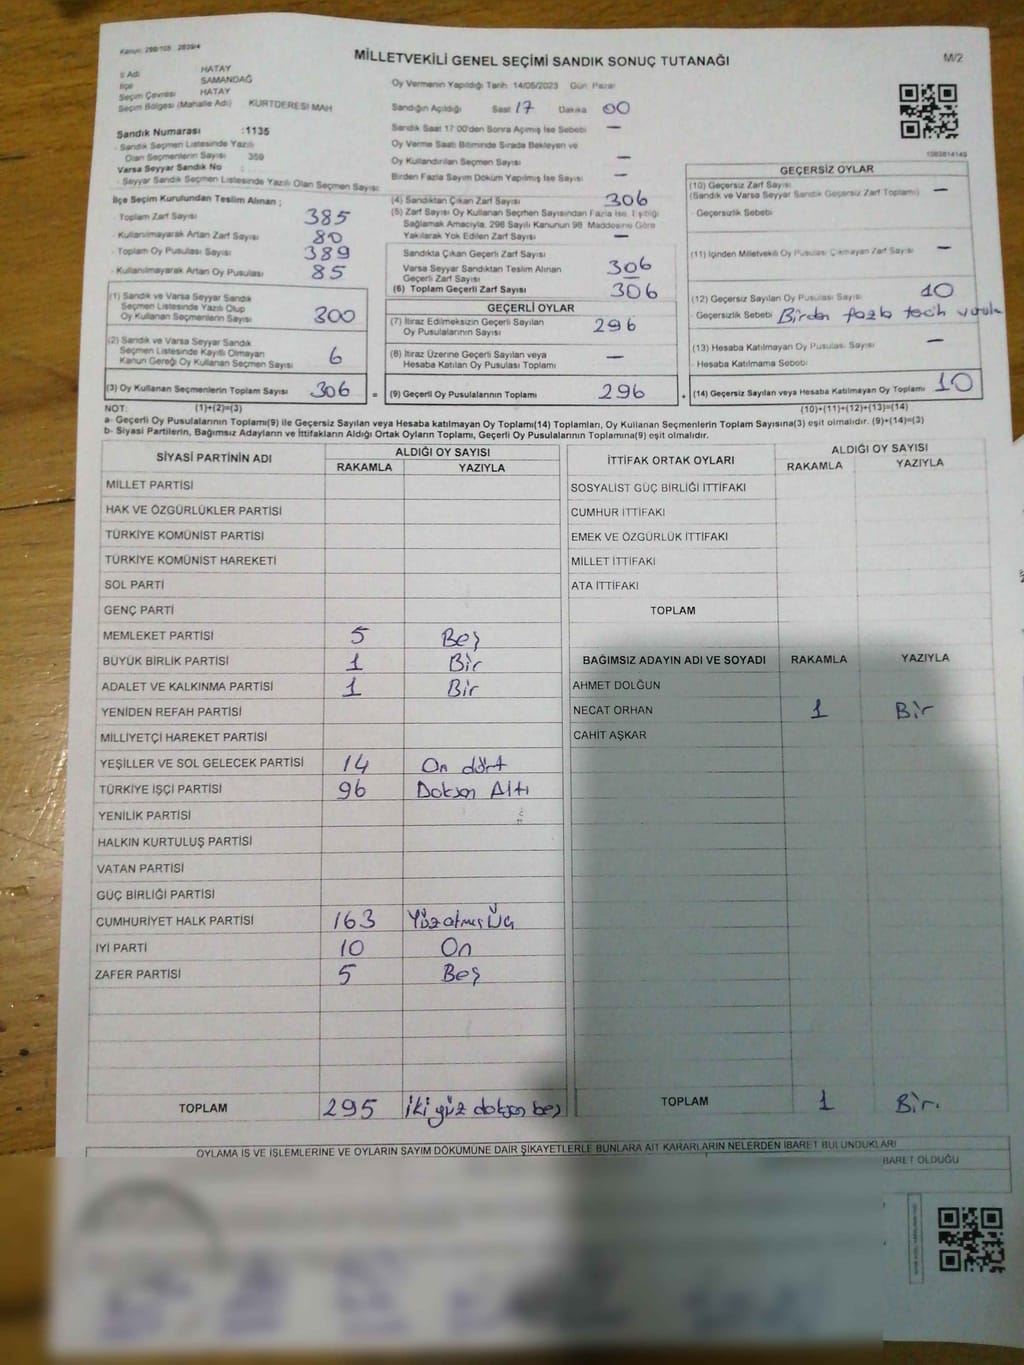 Kanun: 298/105 2839/4
MİLLETVEKİLİ GENEL SEÇİMİ SANDIK SONUÇ TUTANAĞI
M/2
İl Adı HATAY
İlçe SAMANDAĞ
Seçim Çevresi HATAY
Seçim Bölgesi (Mahalle Adı) KURTDERESİ MAH
Sandık Numarası :1135
Sandık Seçmen Listesinde Yazılı
Olan Seçmenlerin Sayısı 359
Varsa Seyyar Sandık No
Seyyar Sandık Seçmen Listesinde Yazılı Olan Seçmen Sayısı
İlçe Seçim Kurulundan Teslim Alınan ;
Toplam Zarf Sayısı 385
Kullanılmayarak Artan Zarf Sayısı 80
Toplam Oy Pusulası Sayısı 389
Kullanılmayarak Artan Oy Pusulası 85
(1) Sandık ve Varsa Seyyar Sandık
Seçmen Listesinde Yazılı Olup
Oy Kullanan Seçmenlerin Sayısı 300
(2) Sandık ve Varsa Seyyar Sandık
Seçmen Listesinde Kayıtlı Olmayan
Kanun Gereği Oy Kullanan Seçmen Sayısı 6
(3) Oy Kullanan Seçmenlerin Toplam Sayısı 306
=
Oy Vermenin Yapıldığı Tarih 14/05/2023 Gün Pazar
Sandığın Açıldığı Saat 17 Dakika 00
Sandık Saat 17:00'den Sonra Açılmış İse Sebebi —
Oy Verme Saati Bitiminde Sırada Bekleyen ve
Oy Kullandırılan Seçmen Sayısı —
Birden Fazla Sayım Döküm Yapılmış İse Sayısı —
(4) Sandıktan Çıkan Zarf Sayısı 306
(5) Zarf Sayısı Oy Kullanan Seçmen Sayısından Fazla İse Eşitliği
Sağlamak Amacıyla, 298 Sayılı Kanunun 98. Maddesine Göre
Yakılarak Yok Edilen Zarf Sayısı —
Sandıkta Çıkan Geçerli Zarf Sayısı 306
Varsa Seyyar Sandıktan Teslim Alınan
Geçerli Zarf Sayısı —
(6) Toplam Geçerli Zarf Sayısı 306
GEÇERLİ OYLAR
(7) İtiraz Edilmeksizin Geçerli Sayılan
Oy Pusulalarının Sayısı 296
(8) İtiraz Üzerine Geçerli Sayılan veya
Hesaba Katılan Oy Pusulası Toplamı —
(9) Geçerli Oy Pusulalarının Toplamı 296
+
1083814149
GEÇERSİZ OYLAR
(10) Geçersiz Zarf Sayısı
(Sandık ve Varsa Seyyar Sandık Geçersiz Zarf Toplamı) —
Geçersizlik Sebebi
(11) İçinden Milletvekili Oy Pusulası Çıkmayan Zarf Sayısı —
(12) Geçersiz Sayılan Oy Pusulası Sayısı 10
Geçersizlik Sebebi Birden fazla
(13) Hesaba Katılmayan Oy Pusulası Sayısı —
Hesaba Katılmama Sebebi
(14) Geçersiz Sayılan veya Hesaba Katılmayan Oy Toplamı 10
NOT: (1)+(2)=(3)
(10)+(11)+(12)+(13)=(14)
a- Geçerli Oy Pusulalarının Toplamı(9) ile Geçersiz Sayılan veya Hesaba katılmayan Oy Toplamı(14) Toplamları, Oy Kullanan Seçmenlerin Toplam Sayısına(3) eşit olmalıdır. (9)+(14)=(3)
b- Siyasi Partilerin, Bağımsız Adayların ve İttifakların Aldığı Ortak Oyların Toplamı, Geçerli Oy Pusulalarının Toplamına(9) eşit olmalıdır.
SİYASİ PARTİNİN ADI
ALDIĞI OY SAYISI
RAKAMLA YAZIYLA
MİLLET PARTİSİ
HAK VE ÖZGÜRLÜKLER PARTİSİ
TÜRKİYE KOMÜNİST PARTİSİ
TÜRKİYE KOMÜNİST HAREKETİ
SOL PARTİ
GENÇ PARTİ
MEMLEKET PARTİSİ 5 Beş
BÜYÜK BİRLİK PARTİSİ 1 Bir
ADALET VE KALKINMA PARTİSİ 1 Bir
YENİDEN REFAH PARTİSİ
MİLLİYETÇİ HAREKET PARTİSİ
YEŞİLLER VE SOL GELECEK PARTİSİ 14 On dört
TÜRKİYE İŞÇİ PARTİSİ 96 Doksan Altı
YENİLİK PARTİSİ
HALKIN KURTULUŞ PARTİSİ
VATAN PARTİSİ
GÜÇ BİRLİĞİ PARTİSİ
CUMHURİYET HALK PARTİSİ 163 Yüzatmış Üç
İYİ PARTİ 10 On
ZAFER PARTİSİ 5 Beş
TOPLAM 295 İki yüz doksan beş
İTTİFAK ORTAK OYLARI
ALDIĞI OY SAYISI
RAKAMLA YAZIYLA
SOSYALİST GÜÇ BİRLİĞİ İTTİFAKI
CUMHUR İTTİFAKI
EMEK VE ÖZGÜRLÜK İTTİFAKI
MİLLET İTTİFAKI
ATA İTTİFAKI
TOPLAM
BAĞIMSIZ ADAYIN ADI VE SOYADI RAKAMLA YAZIYLA
AHMET DOLĞUN
NECAT ORHAN 1 Bir
CAHİT AŞKAR
TOPLAM 1 Bir.
OYLAMA İŞ VE İŞLEMLERİNE VE OYLARIN SAYIM DÖKÜMÜNE DAİR ŞİKAYETLERLE BUNLARA AİT KARARLARIN NELERDEN İBARET BULUNDUKLARI
İBARET OLDUĞU